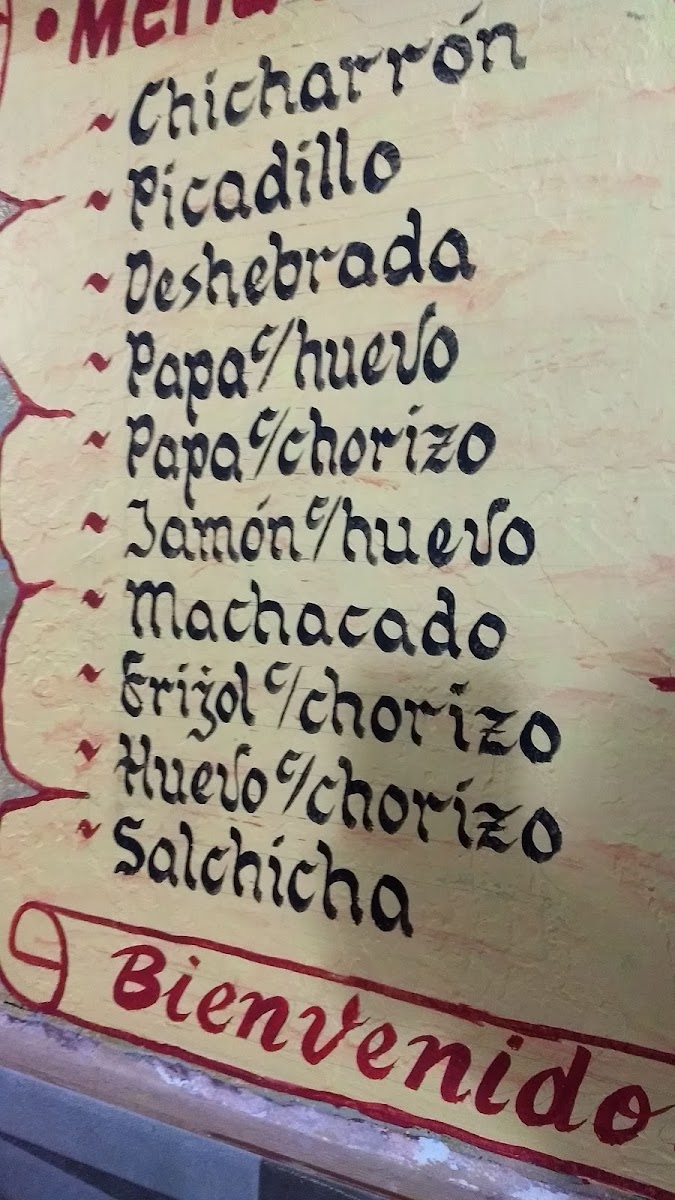 • Menú
~ Chicharrón
~ Picadillo
~ Deshebrada
~ Papa c/huevo
~ Papa c/chorizo
~ Jamón c/huevo
~ Machacado
~ Frijol c/chorizo
~ Huevo c/chorizo
~ Salchicha
Bienvenido